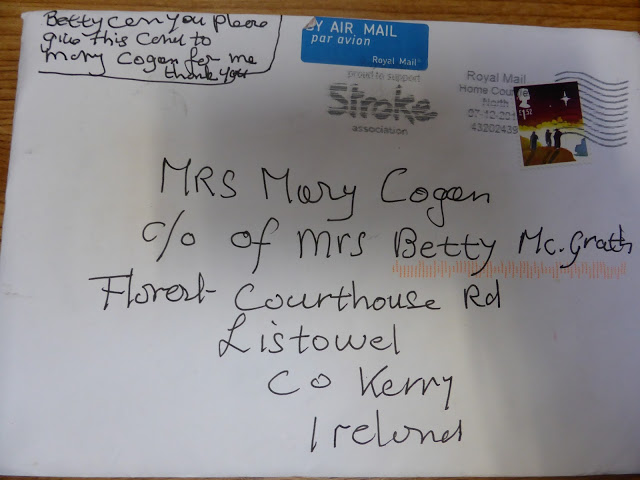 Betty can you please
give this Card to
Mary Cogan for me
thank you
BY AIR MAIL
par avion
Royal Mail
proud to support
Stroke
association
Royal Mail
Home Cou
North
07-12-201
43202439
£1.52
MRS Mary Cogan
c/o of Mrs Betty Mc.Grath
Florest Courthouse Rd
Listowel
Co Kerry
Ireland